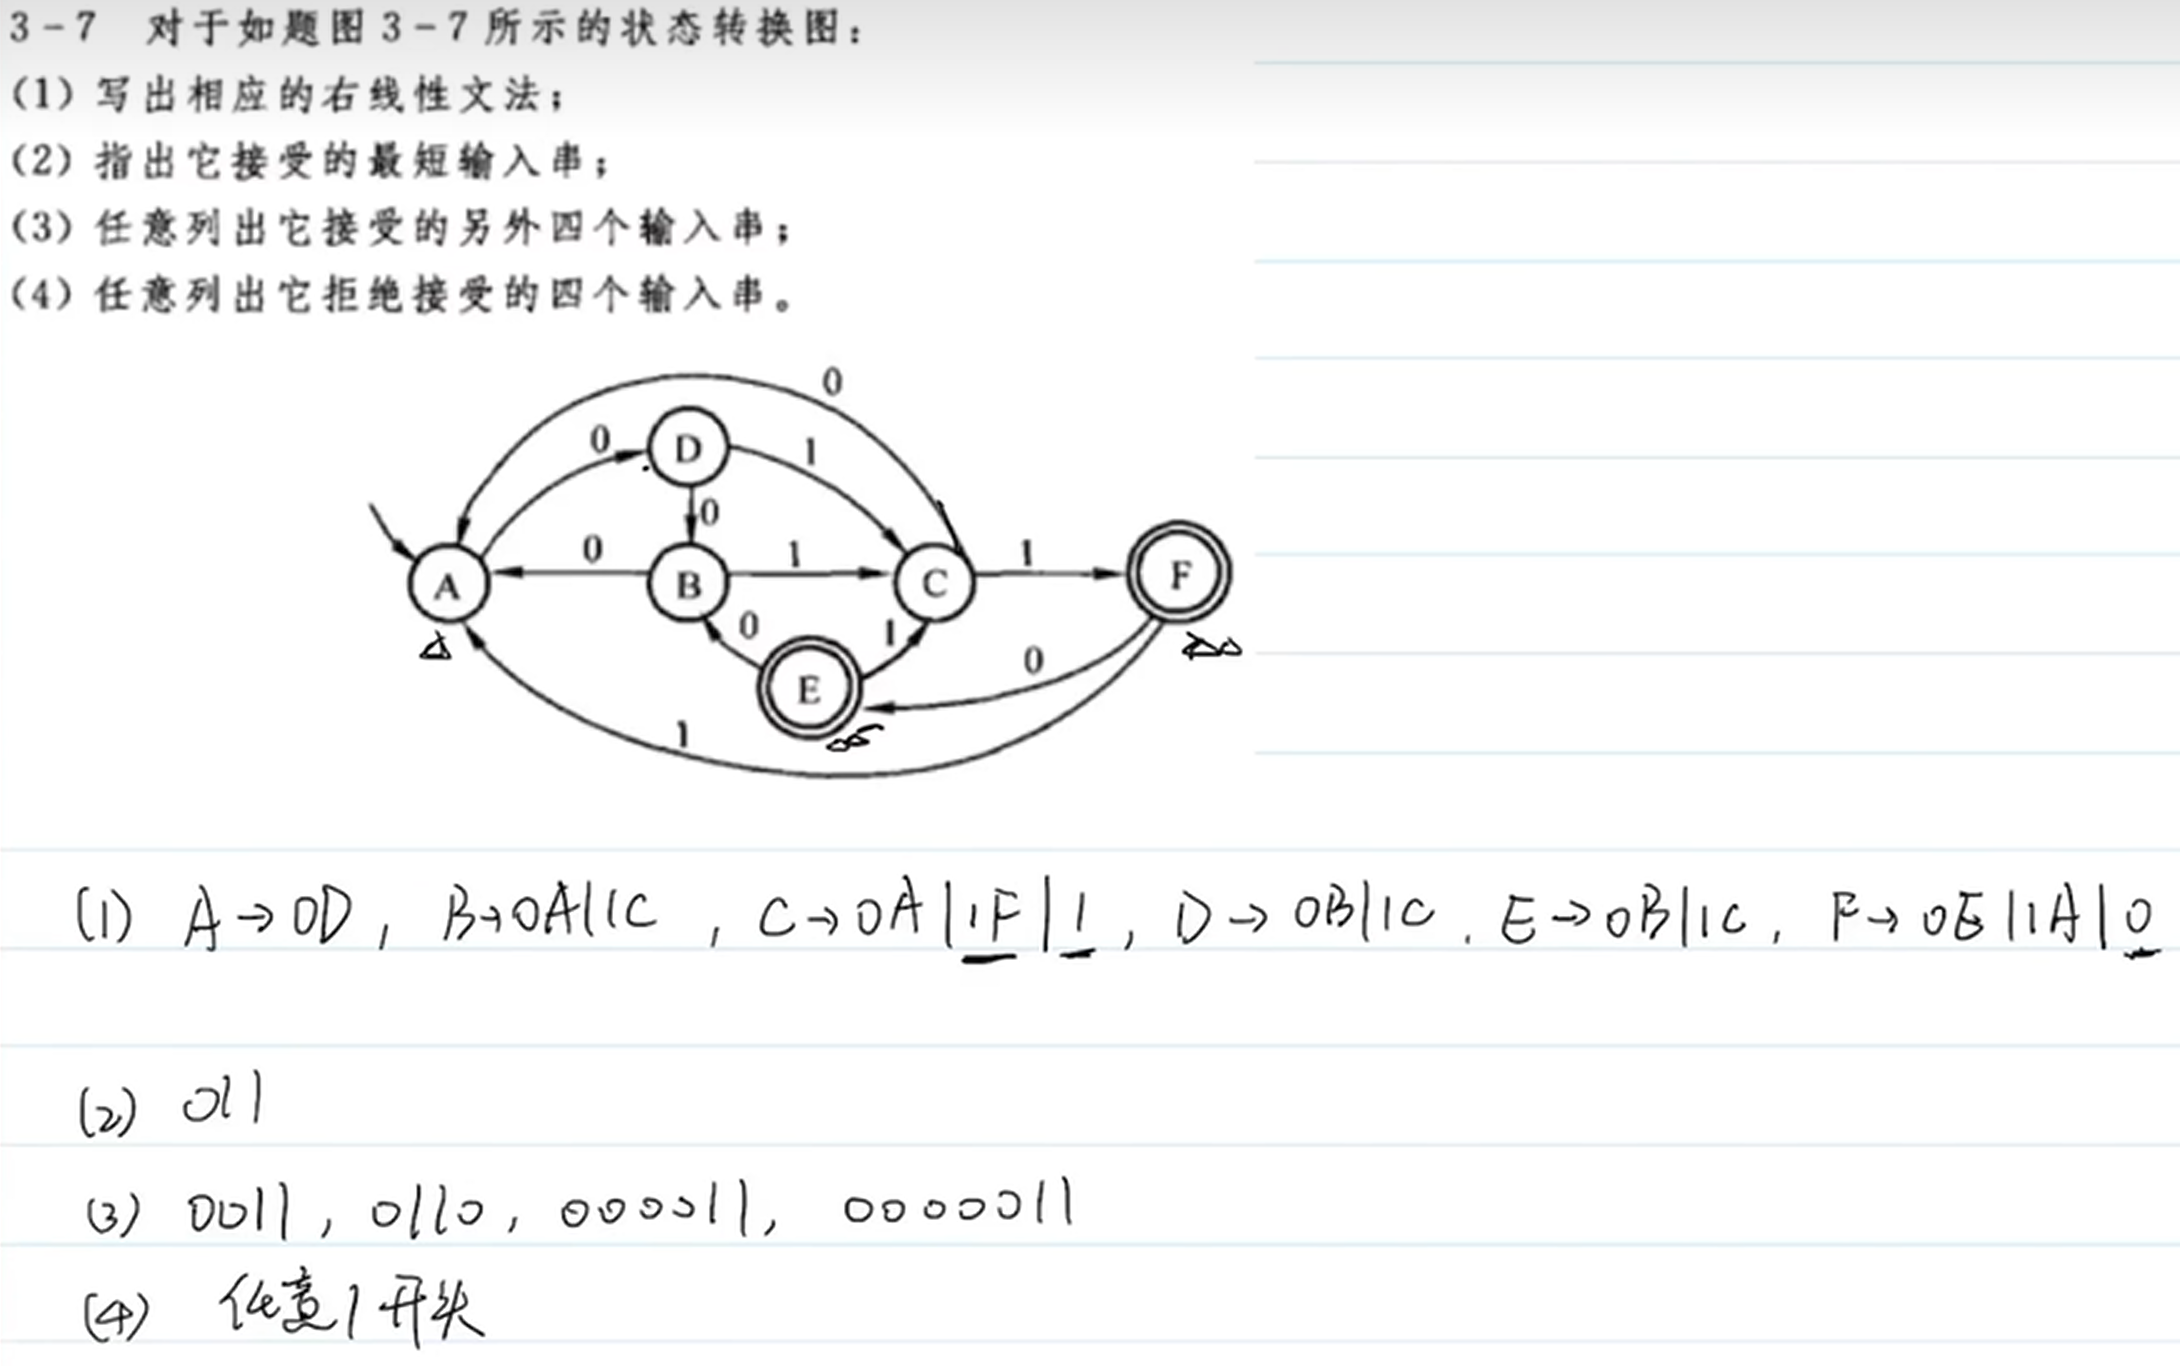 3-7 对于如题图3-7所示的状态转换图：
(1) 写出相应的右线性文法；
(2) 指出它接受的最短输入串；
(3) 任意列出它接受的另外四个输入串；
(4) 任意列出它拒绝接受的四个输入串。
0
0 D 1
0
A 0 B 1 C 1 F
0 1
E 0
1
(1) A→0D, B→0A|1C, C→0A|1F|1, D→0B|1C. E→0B|1C, F→0E|1A|0
(2) 011
(3) 0011, 0110, 000011, 0000011
(4) 任意1开头